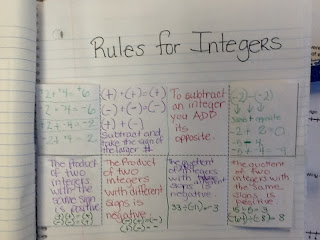 Rules for Integers
2 + 4 = 6
-2 + -4 = -6
2 + -4 = -2
-2 + 4 = 2
(+) + (+) = (+)
(-) + (-) = (-)
(+) + (-)
Subtract and
take the sign of
the larger #.
To subtract
an integer
you ADD
its
opposite.
-2 - (-2)
same opposite
-2 + 2 = 0
The product
of two
integers
with the
same sign
is positive
The Product
of two
integers
with different
signs is
negative.
The quotient
of 2 integers
with
signs is
negative.
33 ÷ (-11) = -3
The quotient
of two
integers
with the
same
signs is
positive
15 ÷ 5 = 3
(-64) ÷ (-8) = 8